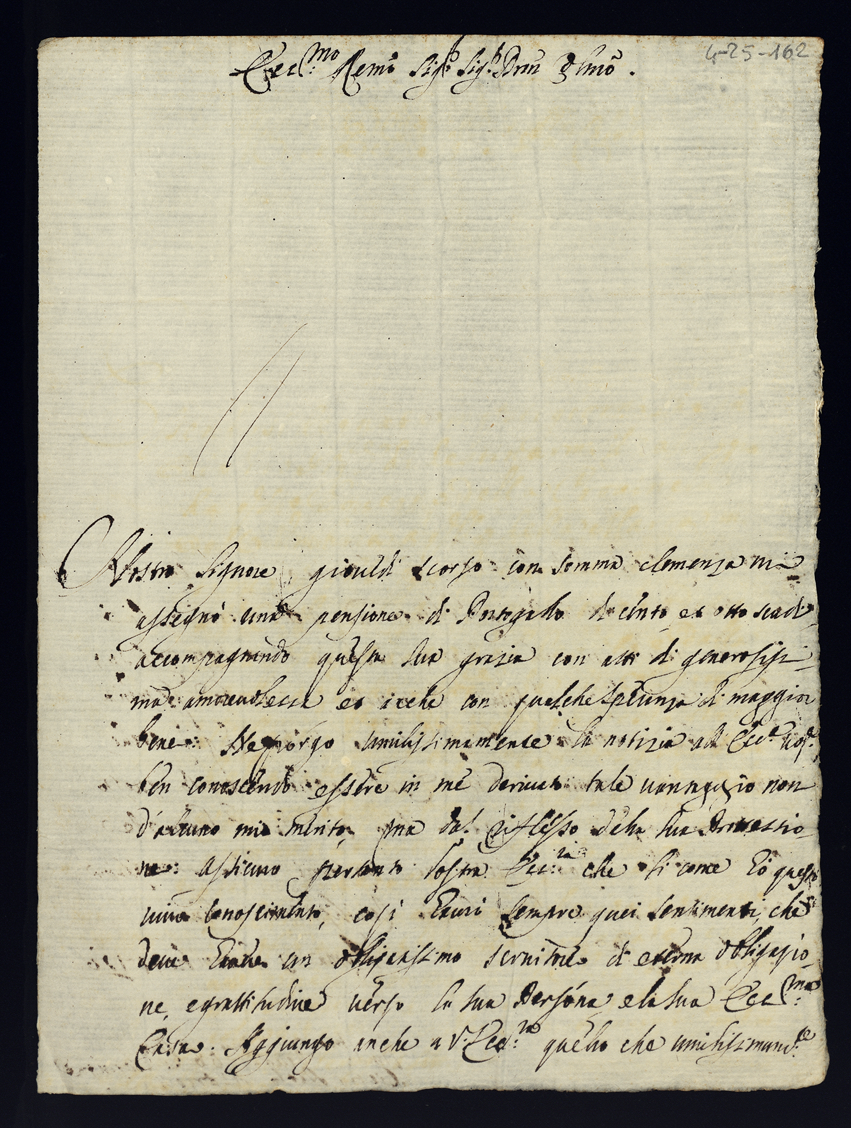 4-25-162
Ecc.mo Remo Sigr Sigr Pnn Clmo.
Nostro Signore giouedi scorso con somma clemenza mi
assegnò una pensione di Portogallo di cento et otto scudi
accompagnando questa sua grazia con atti di generosissi
ma amoreuolezza et anche con qualche speranza di maggior
bene. Ne porgo umilissimamente la notizia all' Ecc.a Vos.a
ben conoscendo essere in me deriuato tale uantaggio non
d'alcuno mio merito, ma dal riflesso della sua Protezzio
ne: assicuro pertanto Vostra Ecc.za che si come hò questo
uiuo conoscimento, così haurò sempre quei sentimenti, che
deue hauere un obligatissimo seruitore di eterna obligazio
ne, e gratitudine uerso la sua Persona, e la sua Ecc.ma
Casa. Aggiungo anche a V. Ecc.za quello che umilissimam.te